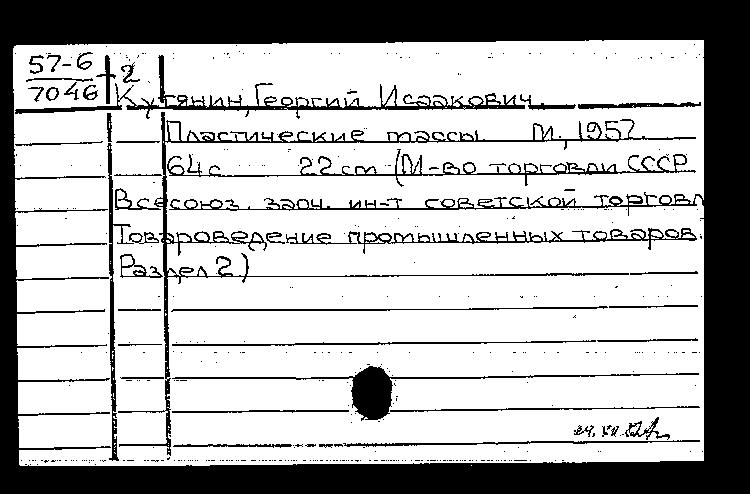 57-6
7046
2
Кутянин, Георгий Исаакович.
Пластические массы. М., 1957.
64 с 22 см (М-во торговли СССР
Всесоюз. заоч. ин-т советской торговл
Товароведение промышленных товаров.
Раздел 2)